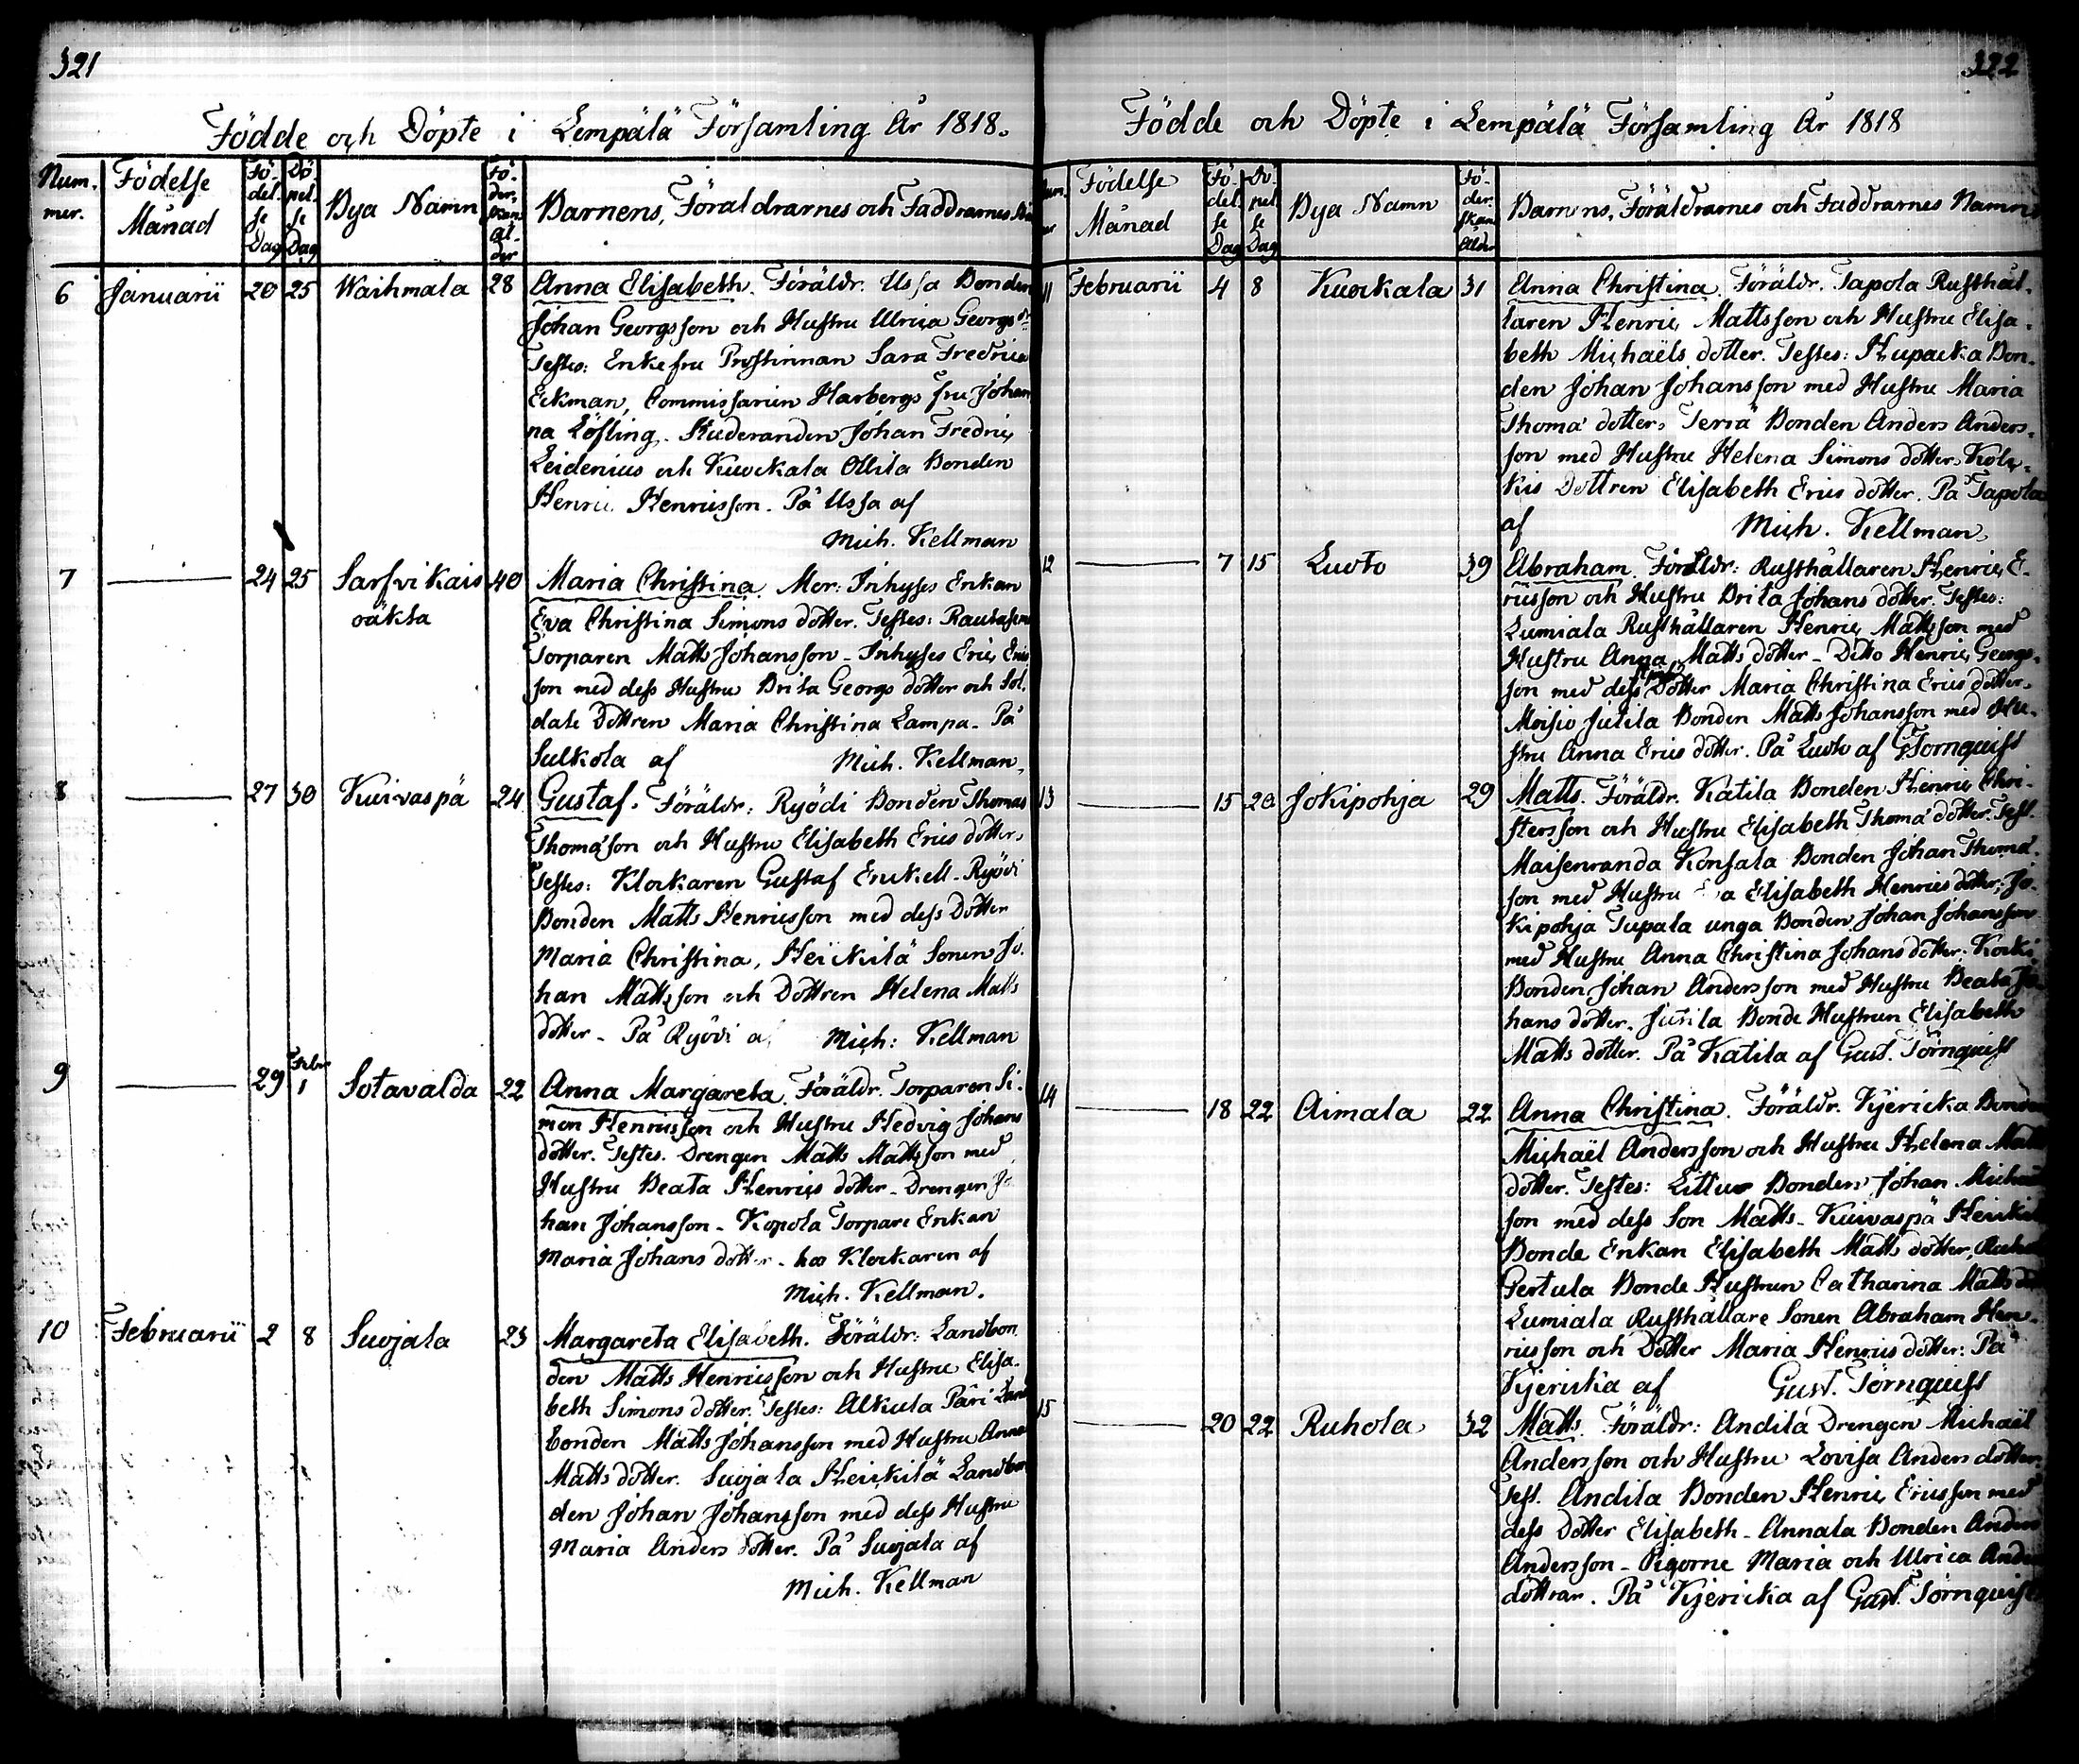 321
Födde och Döpte i Lempälä Församling År 1818.
Num. mer.
Födelse Månad
Fö- del- se Dag
Dö- pel- se Dag
Bya Namn
Fö- der- skan Ål- der
Barnens, Föräldrarnes och Faddrarnes
6 Januarii 20 25 Waihmala 28 Anna Elisabeth. Föräldr. Ussa Bonden
Johan Georgsson och Hustru Ulrica Georgs dr
Testes: Enkefru Prostinnan Sara Fredrica
Eckman, Commissarien Harbergs fru Johan
na Löfling. Studeranden Johan Fredric
Leidenius och Kuockala Ollila Bonden
Henric Henricsson. På Ussa af
Mich. Kellman
7 — 24 25 Sarfvikais 40 Maria Christina. Mor: Inhyses Enkan
oäkta
Eva Christina Simons dotter. Testes:
Torparen Matts Johansson - Inhyses Eric Erics
son med dess Hustru Brita Georgs dotter och Sol.
date Dottren Maria Christina Lampa. På
Sulkola af Mich. Kellman.
8 — 27 30 Kuivaspä 24 Gustaf. Föräldr: Ryödi Bonden Thomas
Thomæson och Hustru Elisabeth Erics dotter.
Testes: Klockaren Gustaf Enckell - Ryödi
Bonden Matts Henricsson med dess Dotter
Maria Christina, Heickilä Sonen Jo.
han Mattsson och Dottren Helena Matts
dotter - På Ryödi af Mich: Kellman
9 — 29 Febr 1 Sotavalda 22 Anna Margareta. Föräldr. Torparen Si.
mon Henricsson och Hustru Hedvig Johans
dotter. Testes. Drengen Matts Mattsson med
Hustru Beata Henrics dotter - Drengen Jo
han Johansson - Kopola Torpare Enkan
Maria Johans dotter - hos Klockaren af
Mich. Kellman.
10 Februarii 2 8 Suojala 23 Margareta Elisabeth. Föräldr: Landbon
den Matts Henricsson och Hustru Elisa.
beth Simons dotter. Testes: Alkula Päri Land
bonden Matts Johansson med Hustru Anna
Matts dotter. Suojala Heickilä Landbon
den Johan Johansson med dess Hustru
Maria Anders dotter. På Suojala af
Mich. Kellman
322
Födde och Döpte i Lempälä Församling År 1818
Num. mer
Födelse Månad
Fö- del- se Dag
Dö- pel- se Dag
Bya Namn
Fö- der- skans ålder
Barnens, Föräldrarnes och Faddrarnes Namn
11 Februarii 4 8 Kuockala 31 Anna Christina. Föräldr. Tapola Rusthål-
laren Henric Mattsson och Hustru Elisa-
beth Michaëls dotter. Testes: Hupacka Bon-
den Johan Johansson med Hustru Maria
Thomæ dotter. Teriä Bonden Anders Anders-
son med Hustru Helena Simons dotter.
Dottren Elisabeth Erics dotter. På Tapola
af Mich. Kellman
12 — 7 15 Luoto 39 Abraham. Föräldr: Rusthållaren Henric E-
ricsson och Hustru Brita Johans dotter. Testes:
Lumiala Rusthållaren Henric Mattsson med
Hustru Anna Matts dotter - Ditto Henric Georgs-
son med dess Dotter Maria Christina Erics dotter.
Moisio Jutila Bonden Matts Johansson med Hu-
stru Anna Erics dotter. På Luoto af G Törnquist
13 — 15 20 Jokipohja 29 Matts. Föräldr. Katila Bonden Henric Chri-
stersson och Hustru Elisabeth Thomæ dotter. Test.
Maisenranda Konsala Bonden Johan Thomæ-
son med Hustru Elisabeth Henrics dotter, Jo-
kipohja Tupala unga Bonden Johan Johansson
med Hustru Anna Christina Johans dotter.
Bonden Johan Andersson med Hustru Beata Jo
hans dotter. Jutila Bonde Hustrun Elisabeth
Matts dotter. På Katila af Gust. Törnquist
14 — 18 22 Aimala 22 Anna Christina. Föräldr. Kjericka Bonden
Michaël Andersson och Hustru Helena Matts
dotter. Testes: Bonden Johan Michaels
son med dess Son Matts - Kuivaspä Heickilä
Bonde Enkan Elisabeth Matts dotter,
Pertula Bonde Hustrun Catharina Matts dotter
Lumiala Rusthållare Sonen Abraham Hen-
ricsson och Dotter Maria Henrics dotter: På
Kjericka af Gust. Törnquist
15 — 20 22 Ruhola 32 Matts. Föräldr: Andila Drengen Michaël
Andersson och Hustru Lovisa Anders dotter.
Test. Andila Bonden Henric Ericsson med
dess Dotter Elisabeth - Annala Bonden Anders
Andersson - Pigorne Maria och Ulrica Anders
döttrar. På Kjericka af Gust. Törnquist